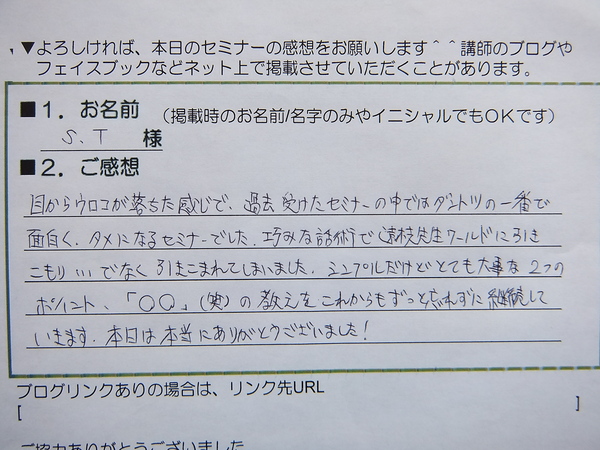 ▼よろしければ、本日のセミナーの感想をお願いします＾＾講師のブログや
フェイスブックなどネット上で掲載させていただくことがあります。
■１．お名前 （掲載時のお名前/名字のみやイニシャルでもＯＫです）
S.T 様
■２．ご感想
目からウロコが落ちた感じで、過去受けたセミナーの中ではダントツの一番で
面白く、タメになるセミナーでした。巧みな話術で遠枝先生ワールドに引き
こもり…でなく引きこまれてしまいました。シンプルだけどとても大事な2つの
ポイント、「○○」(笑)の教えをこれからもずっと忘れずに継続して
いきます。本日は本当にありがとうございました！
ブログリンクありの場合は、リンク先URL
[ ]
ご協力ありがとうございました